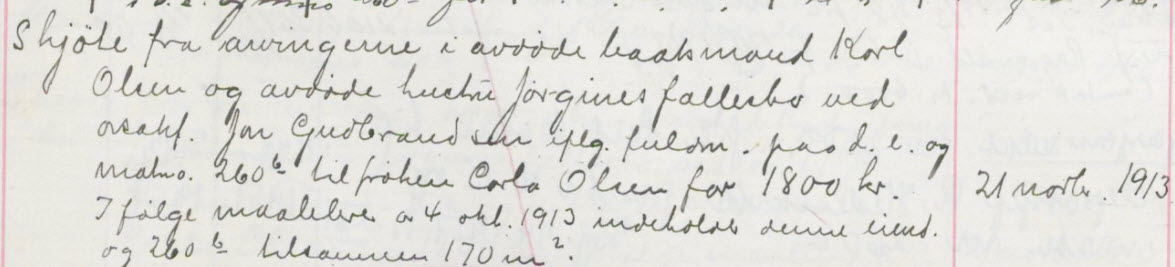 Skjöte fra arvingerne i avdøde baatsmand Karl
Olsen og avdøde hustru Jørgines fællesbo ved
o.saksf. Jon Gudbrandsen iflg. fuldm. paa d. e. og
matno. 260b til frøken Carla Olsen for 1800 kr 21 novbr. 1913
Ifølge maalebrev av 4 okt. 1913 indeholder denne eiend.
og 260b tilsammen 170 m2.